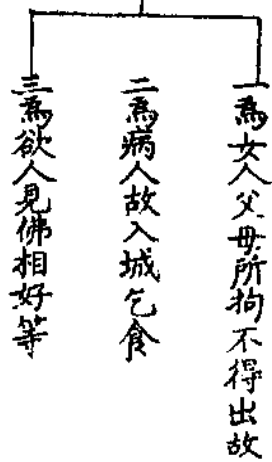 一爲女人父母所拘不得出故
二爲病人故入城乞食
三爲欲人見佛相好等